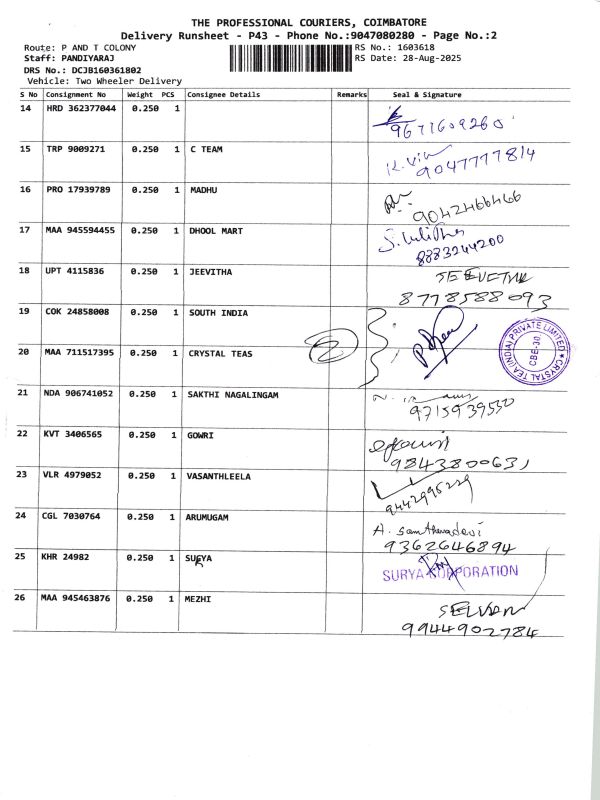 THE PROFESSIONAL COURIERS, COIMBATORE
Delivery Runsheet - P43 - Phone No.:9047080280 - Page No.:2
Route: P AND T COLONY
RS No.: 1603618
Staff: PANDIYARAJ
RS Date: 28-Aug-2025
DRS No.: DCJB160361802
Vehicle: Two Wheeler Delivery
S No Consignment No Weight PCS Consignee Details Remarks Seal & Signature
14 HRD 362377044 0.250 1
9671609260
15 TRP 9009271 0.250 1 C TEAM
9047777814
16 PRO 17939789 0.250 1 MADHU
9042466466
17 MAA 945594455 0.250 1 DHOOL MART
8883244200
18 UPT 4115836 0.250 1 JEEVITHA
8778588093
19 COK 24858008 0.250 1 SOUTH INDIA
20 MAA 711517395 0.250 1 CRYSTAL TEAS
2
CRYSTAL TEA (INDIA) PRIVATE LIMITED
CBE-30
21 NDA 906741052 0.250 1 SAKTHI NAGALINGAM
9715939530
22 KVT 3406565 0.250 1 GOWRI
9843800631
23 VLR 4979052 0.250 1 VASANTHLEELA
9442995229
24 CGL 7030764 0.250 1 ARUMUGAM
9362646894
25 KHR 24982 0.250 1 SURYA
SURYA CORPORATION
26 MAA 945463876 0.250 1 MEZHI
SELVAN
9944902784